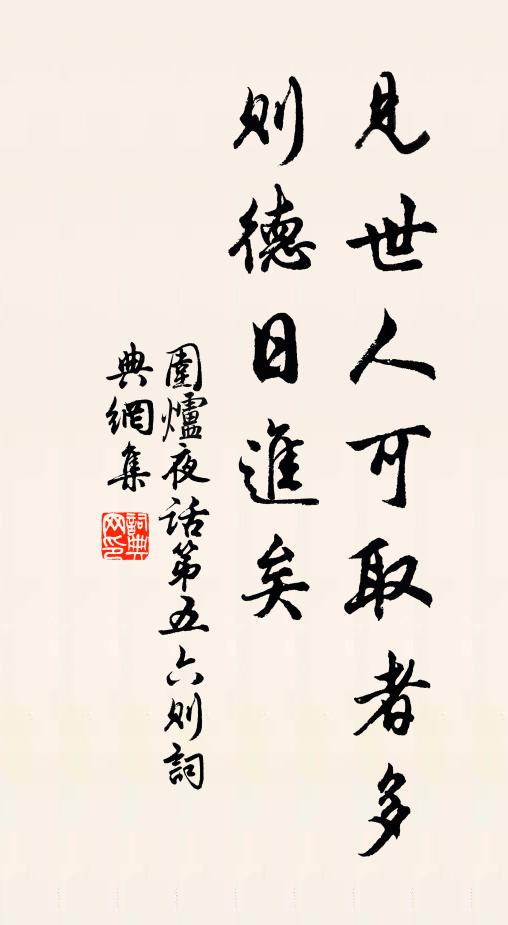 見世人可取者多
則德日進矣
圍爐夜话第五六则詞
典網集
詞典
網印